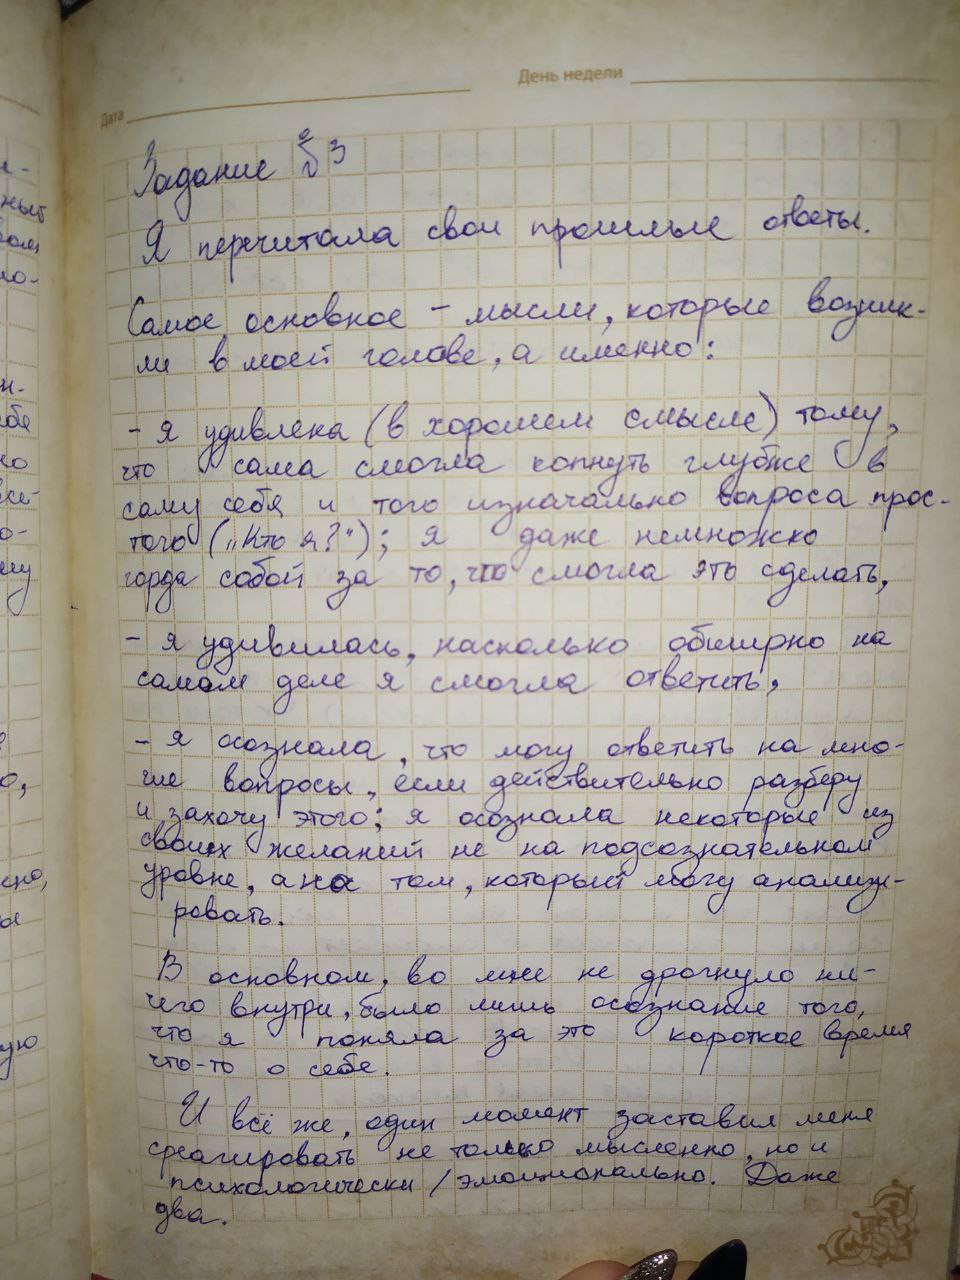 День недели
Дата
Задание № 3
Я перечитала свои прошлые ответы.
Самое основное – мысли, которые возник-
ли в моей голове, а именно:
- я удивлена (в хорошем смысле) тому,
что сама смогла копнуть глубже в
саму себя и того изначально вопроса прос-
того („Кто я?"); я даже немножко
горда собой за то, что смогла это сделать,
- я удивилась, насколько обширно на
самом деле я смогла ответить,
- я осознала, что могу ответить на мно-
гие вопросы, если действительно разберу
и захочу этого; я осознала некоторые из
своих желаний не на подсознательном
уровне, а на том, который могу анализи-
ровать.
В основном, во мне не дрогнуло ни-
чего внутри, было лишь осознание того,
что я поняла за это короткое время
что-то о себе.
И всё же, один момент заставил меня
среагировать не только мысленно, но и
психологически/эмоционально. Даже
два.